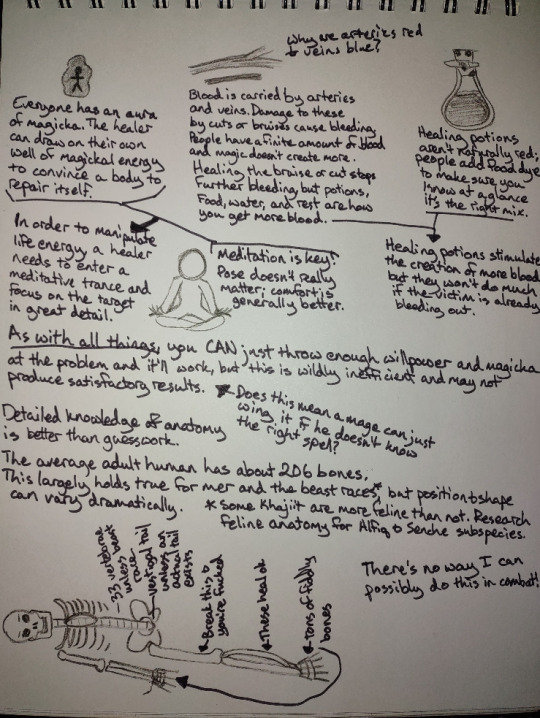 Why are arteries red
& veins blue?
Everyone has an aura
of magicka. The healer
can draw on their own
well of magickal energy
to convince a body to
repair itself.
Blood is carried by arteries
and veins. Damage to these
by cuts or bruises cause bleeding.
People have a finite amount of blood
and magic doesn't create more.
Healing the bruise or cut stops
further bleeding, but potions,
food, water, and rest are how
you get more blood.
Healing potions
aren't naturally red;
people add food dye
to make sure you
know at a glance
it's the right mix.
In order to manipulate
life energy a healer
needs to enter a
meditative trance and
focus on the target
in great detail.
Meditation is key!
Pose doesn't really
matter; comfort is
generally better.
Healing potions stimulate
the creation of more blood
but they won't do much
if the victim is already
bleeding out.
As with all things, you CAN just throw enough willpower and magicka
at the problem and it'll work, but this is wildly inefficient and may not
produce satisfactory results.
Does this mean a mage can just
wing it if he doesn't know
the right spell?
Detailed knowledge of anatomy
is better than guesswork.
The average adult human has about 206 bones.
This largely holds true for mer and the beast races*, but position & shape
can vary dramatically.
* Some Khajiit are more feline than not. Research
feline anatomy for Alfiq & Senche subspecies.
33 vertebrae
unless beast
race
vestigial tail
unless an
actual tail
exists
Break this &
you're fucked
These heal ok
tons of fiddly
bones
There's no way I can
possibly do this in combat!